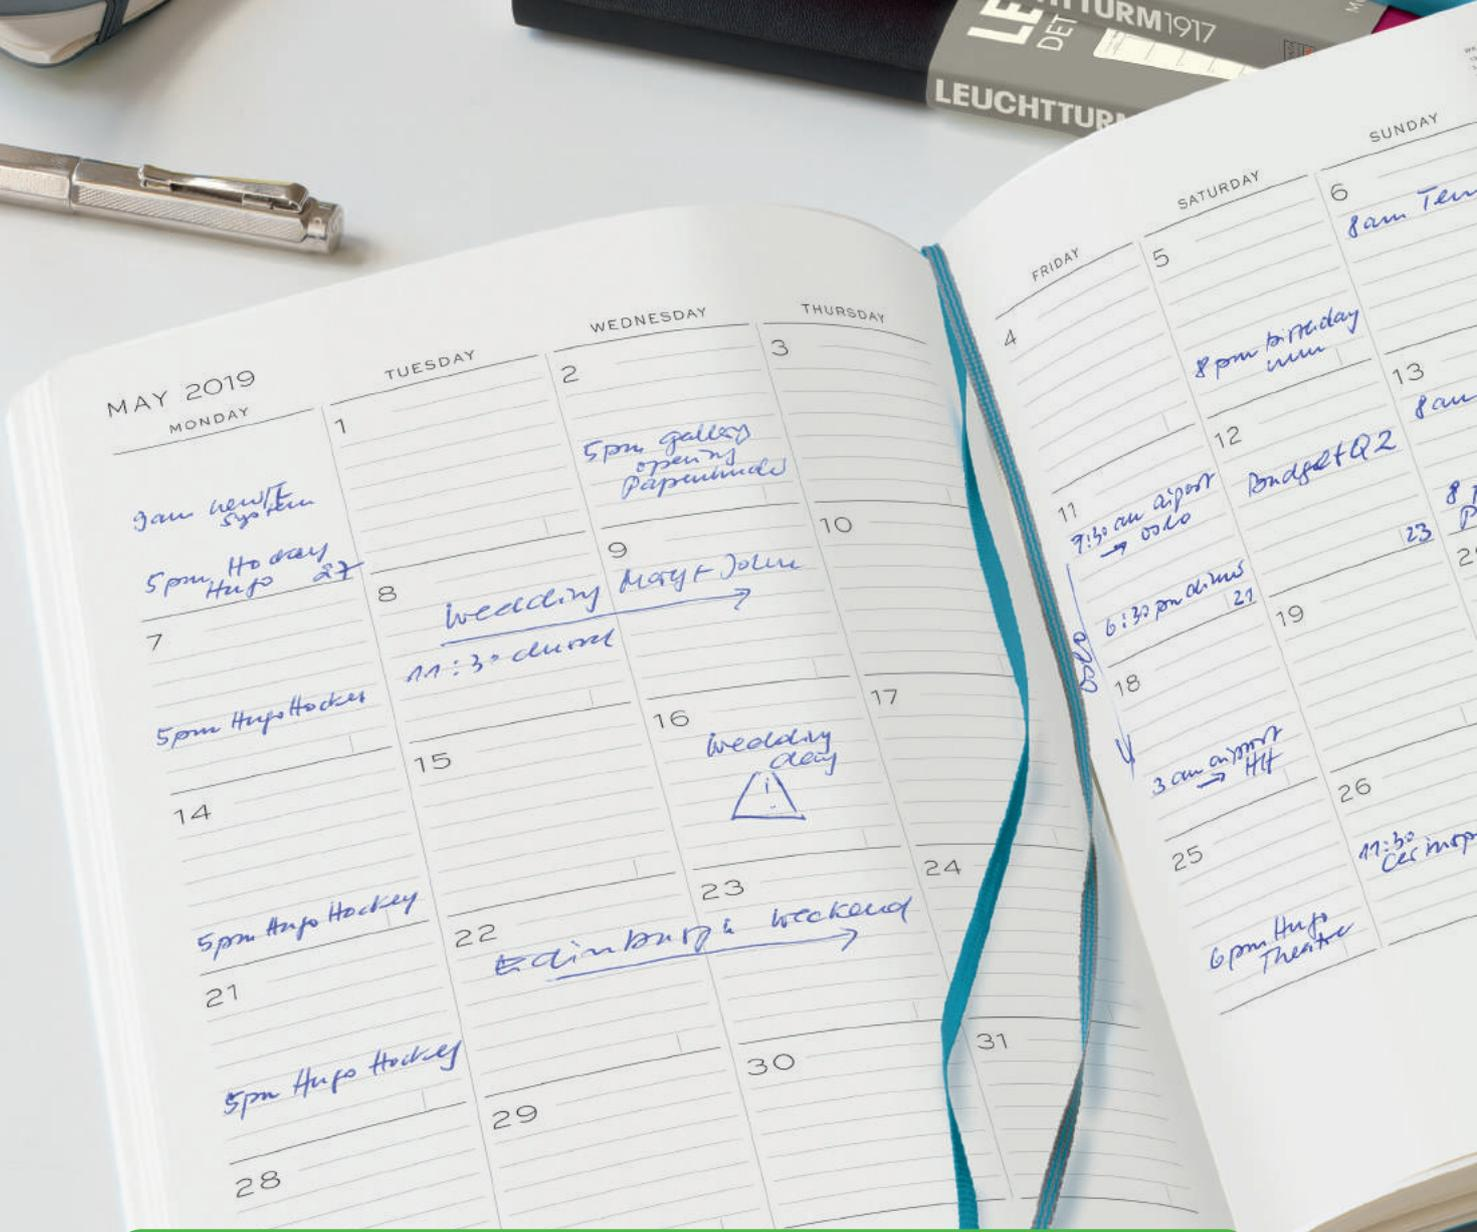 TTURM1917
LE
DET
LEUCHTTURM
MAY 2019
MONDAY
TUESDAY
WEDNESDAY
THURSDAY
FRIDAY
SATURDAY
SUNDAY
9am new IT
system
5pm Hockey
Hugo 27
1
2
5pm gallery
opening
3
4
5
8pm birthday
6
8am
7
5pm Hugo Hockey
8
9
wedding Mary + John
11:30 church
10
11
9:30 am airport
→ oslo
6:30 pm dinner
21
oslo
12
Budget Q2
23
13
8am
14
5pm Hugo Hockey
15
16
wedding
day
!
17
18
3 am airport
→ HH
19
21
5pm Hugo Hockey
22
23
Edinburgh weekend
24
25
6pm Hugo
Theatre
26
11:30
28
29
30
31